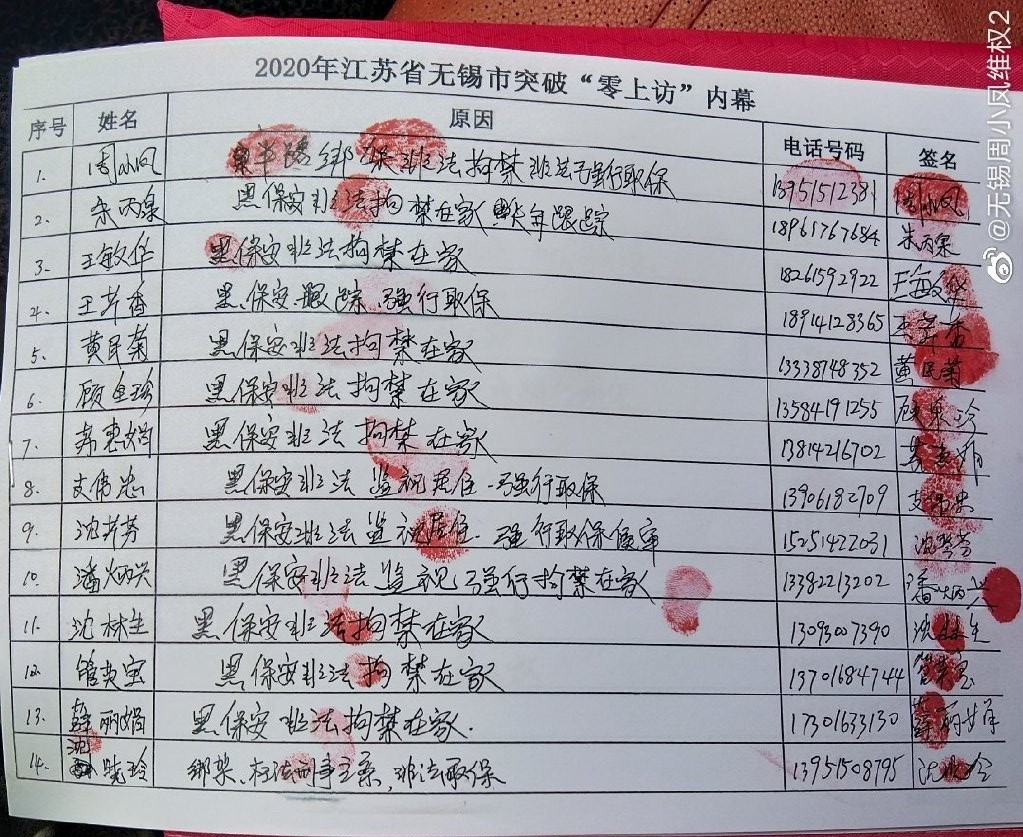 2020年江苏省无锡市突破“零上访”内幕
序号 姓名 原因 电话号码 签名
1. 周小凤 绑架非法拘禁非法强行取保 13951512381 周小凤
2. 朱丙泉 黑保安非法拘禁在家 跟踪 18961767684 朱丙泉
3. 王敏华 黑保安非法拘禁在家 18261592922 王敏华
4. 王芹香 黑保安跟踪、强行取保 18914128365 王芹香
5. 黄民菊 黑保安非法拘禁在家 13338748352 黄民菊
6. 顾 珍 黑保安非法拘禁在家 13584191255 顾 珍
7. 惠娟 黑保安非法拘禁在家 13814216702
8. 支伟忠 黑保安非法监视居住、强行取保 13906182709 支伟忠
9. 沈 芳 黑保安非法监视居住、强行取保候审 15251422031 沈 芳
10. 潘炳兴 黑保安非法监视强行拘禁在家 13382213202 潘炳兴
11. 沈林生 黑保安非法拘禁在家 13093007390 沈林生
12. 管 宝 黑保安非法拘禁在家 13701684744 管
13. 丽娟 黑保安非法拘禁在家. 17301633130 丽娟
14. 沈 玲 绑架、枉法刑事立案,非法取保 13951508795 沈 玲
@无锡周小凤维权2